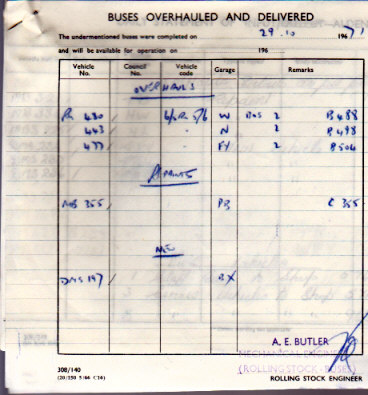 BUSES OVERHAULED AND DELIVERED
The undermentioned buses were completed on 29.10 1967 71
and will be available for operation on 196
Vehicle No. Council No. Vehicle code Garage Remarks
OVERHAULS
430 / 5/6 W BOS 2 B 488
443 / " N 2 B 498
433 / " FY 2 B 504
REPAINTS
MB 355 / PB C 355
NEW
DMS 197 / BX
A. E. BUTLER
MECHANICAL ENGINEER
(ROLLING STOCK - BUSES)
308/140
(20/150 5/66 C14) ROLLING STOCK ENGINEER